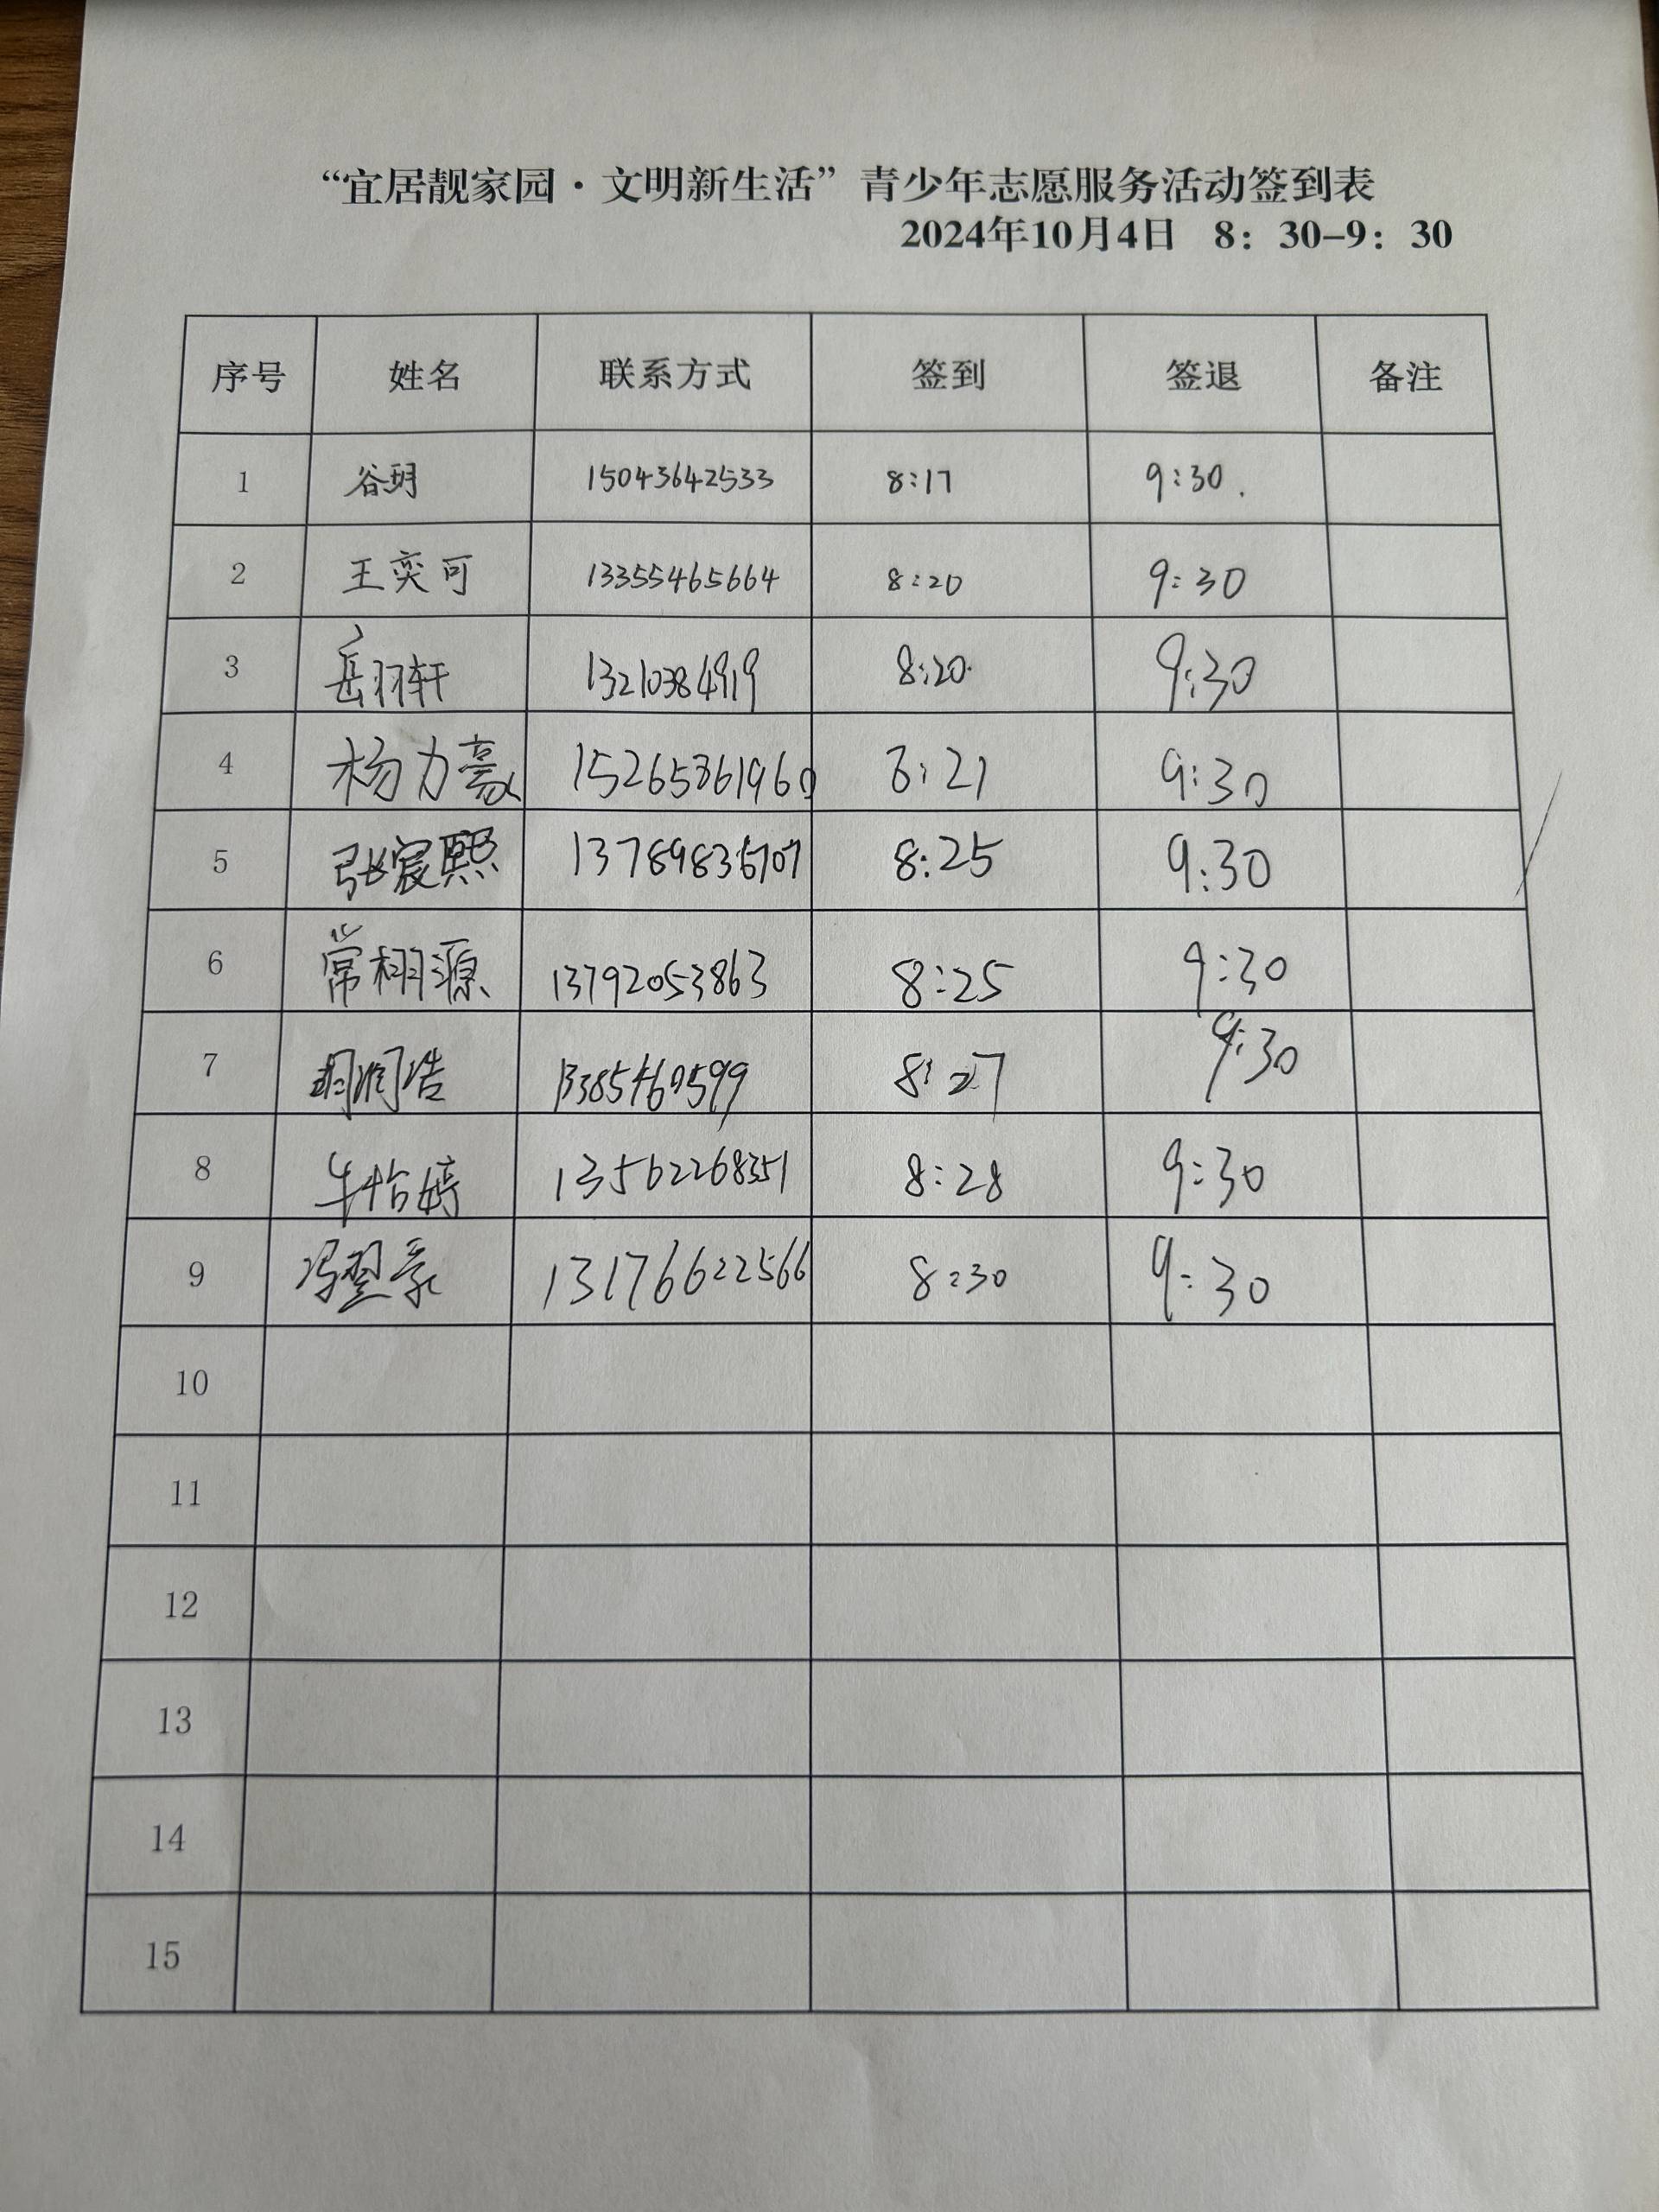 “宜居靓家园·文明新生活”青少年志愿服务活动签到表
2024年10月4日 8：30-9：30
序号 姓名 联系方式 签到 签退 备注
1 谷玥 15043642533 8:17 9:30.
2 王奕可 13355465664 8:20 9:30
3 岳羽轩 13210384919 8:20 9:30
4 杨力豪 15265361960 8:21 9:30
5 张宸熙 8:25 9:30
6 常栩源 13792053863 8:25 9:30
7 8:27 9:30
8 牛怡婷 13562268351 8:28 9:30
9 冯翌豪 13176622566 8:30 9:30
10
11
12
13
14
15